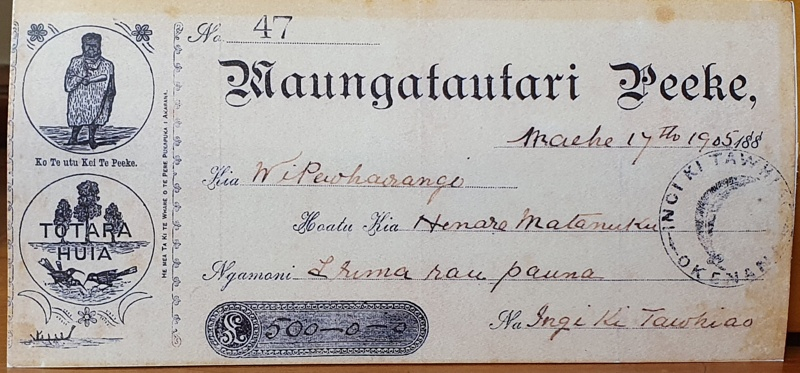 No 47
Maungatautari Peeke,
Maehe 17th 1905 188
Kia Wi Pewhairangi
Hoatu Kia Henare Matanuku
Ngamoni £ rima rau pauna
£ 500-0-0
Na Ingi Ki Tawhiao
Ko Te utu Kei Te Peeke.
TOTARA
HUIA
HE MEA TA KI TE WHARE O TE PEPE PUKAPUKA I AKARANA.
INGI KI TAWHI